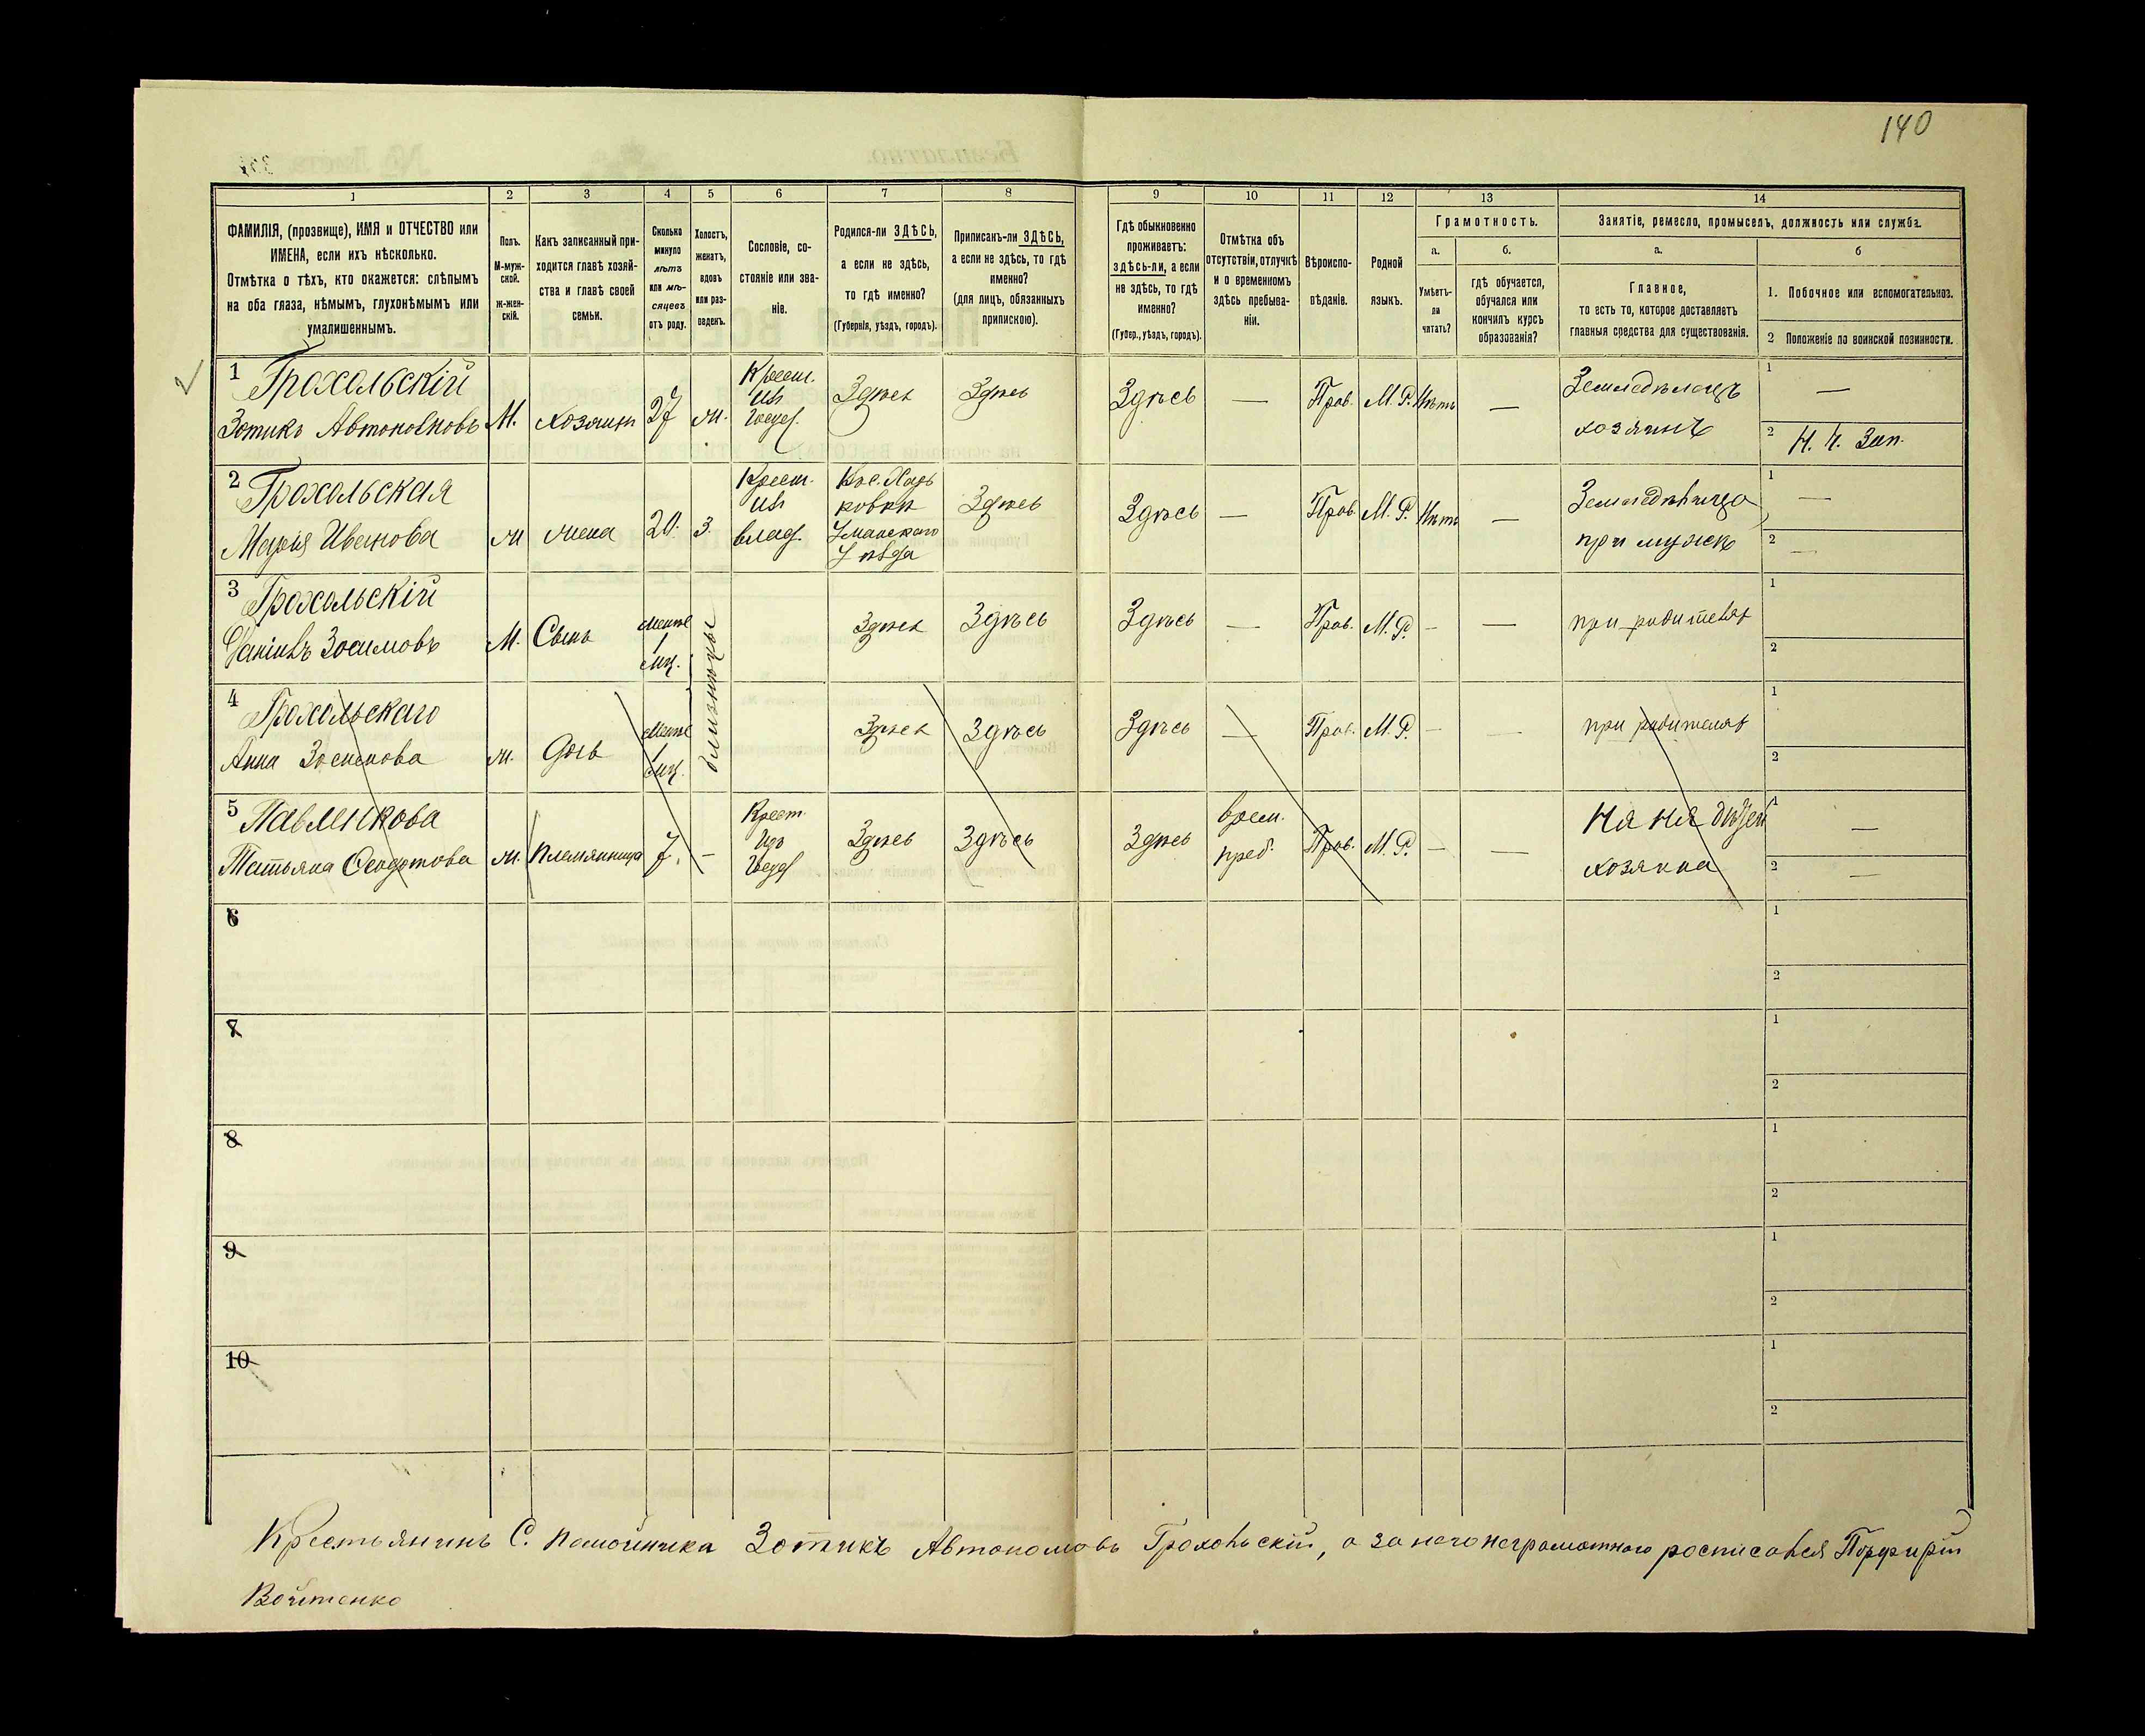 140
1 2 3 4 5 6 7 8 9 10 11 12 13 14
ФАМИЛІЯ, (прозвище), ИМЯ и ОТЧЕСТВО или
ИМЕНА, если ихъ нѣсколько.
Отмѣтка о тѣхъ, кто окажется: слѣпымъ
на оба глаза, нѣмымъ, глухонѣмымъ или
умалишеннымъ.
Полъ.
М-муж-
ской.
ж-жен-
скій.
Какъ записанный при-
ходится главѣ хозяй-
ства и главѣ своей
семьи.
Сколько
минуло
лѣтъ
или мѣ-
сяцевъ
отъ роду.
Холостъ,
женатъ,
вдовъ
или раз-
веденъ.
Сословіе, со-
стояніе или зва-
ніе.
Родился-ли ЗДѢСЬ,
а если не здѣсь,
то гдѣ именно?
(Губернія, уѣздъ, городъ).
Приписанъ-ли ЗДѢСЬ,
а если не здѣсь, то гдѣ
именно?
(для лицъ, обязанныхъ
припискою).
Гдѣ обыкновенно
проживаетъ:
здѣсь-ли, а если
не здѣсь, то гдѣ
именно?
(Губер., уѣздъ, городъ).
Отмѣтка объ
отсутствіи, отлучкѣ
и о временномъ
здѣсь пребыва-
ніи.
Вѣроиспо-
вѣданіе.
Родной
языкъ.
Грамотность.
а.
Умѣетъ-
ли
читать?
б.
гдѣ обучается,
обучался или
кончилъ курсъ
образованія?
Занятіе, ремесло, промыселъ, должность или служба.
а.
Главное,
то есть то, которое доставляетъ
главныя средства для существованія.
б
1. Побочное или вспомогательное.
2 Положеніе по воинской повинности.
1 Грохольскій
Зотикъ Автономовъ
М.
хозяинъ
27
Крест.
изъ
Здѣсь
Здѣсь
Здѣсь
—
Прав.
М. Р.
Нѣтъ
—
Земледѣлецъ
хозяинъ
1 —
2
2 Грохольская
Марія Иванова
жена
20.
З.
Крест.
изъ
влад.
Уманскаго
Уѣзда
Здѣсь
Здѣсь
—
Прав.
М. Р.
Нѣтъ
—
при мужѣ
1 —
2 —
3 Грохольскій
Зосимовъ
М.
Сынъ
Менѣе
1
мѣ.
близнюки
Здѣсь
Здѣсь
Здѣсь
—
Прав.
М. Р.
—
—
при родителях
1
2
4 Грохольскаго
Анна Зосимова
Дочь
Менѣе
1
мѣ.
Здѣсь
Здѣсь
Здѣсь
—
Прав.
М. Р.
—
—
при родителях
1
2
5 Павленкова
Татьяна
Племянница
7.
—
Крест.
изъ
Здѣсь
Здѣсь
Здѣсь
врем.
преб.
Прав.
М. Р.
—
—
няня дѣтей
хозяина
1 —
2 —
6
1
2
7
1
2
8
1
2
9
1
2
10
1
2
Крестьянинъ С. Помойника Зотикъ Автономовъ Грохольскій, а за него неграмотнаго росписался Порфирій
Войтенко